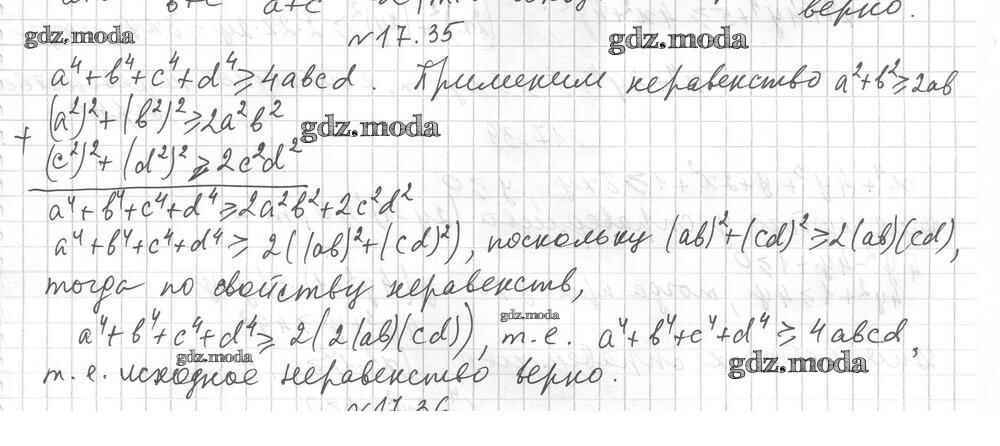 верно.
gdz.moda
№17.35
gdz.moda
a⁴+b⁴+c⁴+d⁴≥4abcd. Применим неравенство a²+b²≥2ab
+ (a²)²+(b²)²≥2a²b²
gdz.moda
(c²)²+(d²)²≥2c²d²
a⁴+b⁴+c⁴+d⁴≥2a²b²+2c²d²
a⁴+b⁴+c⁴+d⁴≥2((ab)²+(cd)²), поскольку (ab)²+(cd)²≥2(ab)(cd),
тогда по свойству неравенств,
gdz.moda
a⁴+b⁴+c⁴+d⁴≥2(2(ab)(cd)), т.е. a⁴+b⁴+c⁴+d⁴≥4abcd,
gdz.moda
gdz.moda
т.е. исходное неравенство верно.
№17.36